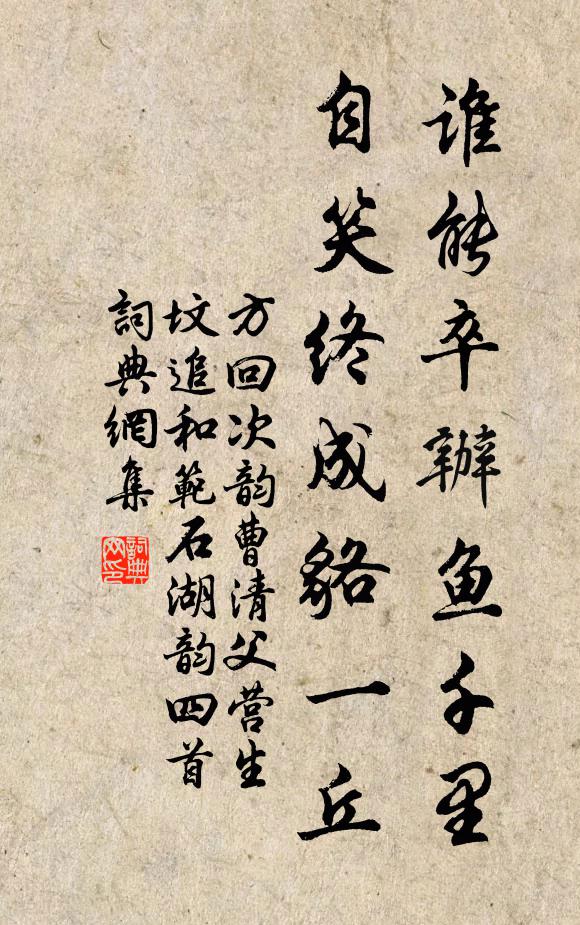 谁能卒辦鱼千里
自笑终成貉一丘
方回次韵曹清父营生
坟追和範石湖韵四首
詞典網集
詞典
网印